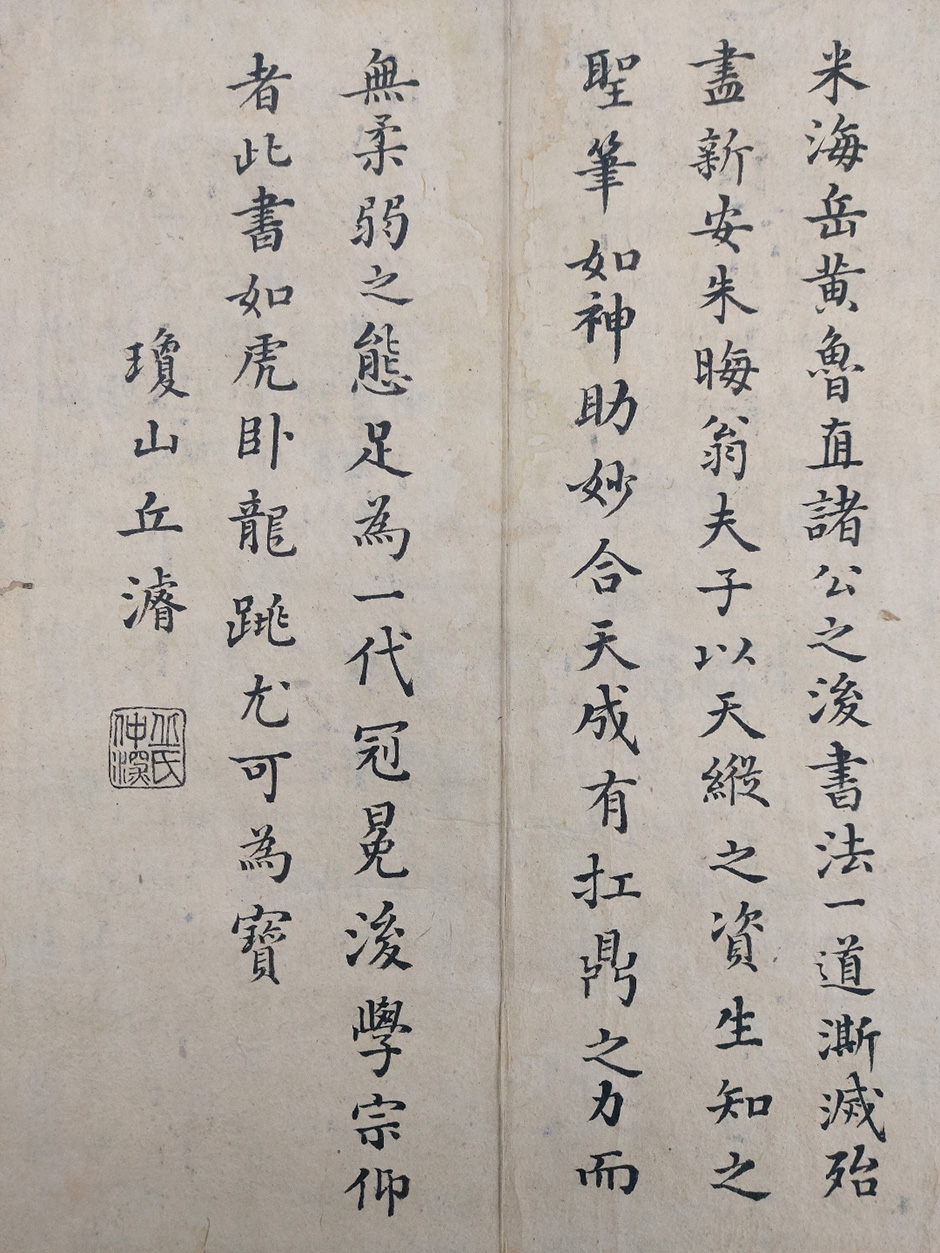 米海岳黄魯直諸公之浚書法一道澌滅殆
盡新安朱晦翁夫子以天縱之資生知之
聖筆如神助妙合天成有扛鼎之力而
無柔弱之態足為一代冠冕浚學宗仰
者此書如虎卧龍跳尤可為寶
瓊山丘濬
丘氏仲深